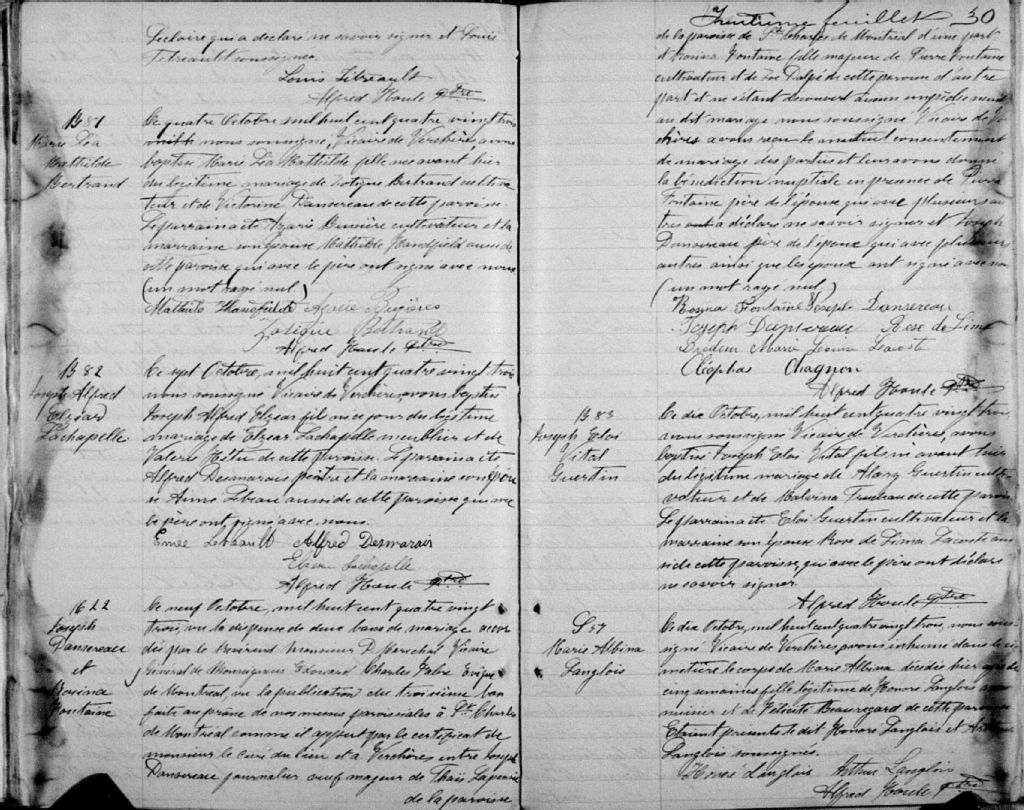 Leclaire qui a declaré ne savoir signer et Louis
Tétreault soussignés.
Louis Tétreault
Alfred Houle ptre
B 81
Marie Léa
Mathilde
Bertrand
Ce quatre Octobre mil huit cent quatre vingt trois
nous soussigné, Vicaire de Verchères, avons
baptisé Marie Léa Mathilde fille née avant hier
du légitime mariage de Zotique Bertrand cultiva
teur et de Victorine Dansereau de cette paroisse.
Le parrain a été Azarie Bussière cultivateur et la
marraine son épouse Mathilde Handfield aussi de
cette paroisse qui avec le père ont signé avec nous
(un mot rayé nul)
Mathilde Handfield Azarie
Zotique Bertrand
Alfred Houle ptre
B 82
Joseph Alfred
Elzéar
Lachapelle
Ce sept Octobre, mil huit cent quatre vingt trois
nous soussigné Vicaire de Verchères, avons baptisé
Joseph Alfred Elzear fils né ce jour du légitime
mariage de Elzear Lachapelle meublier et de
Valerie Hétu de cette paroisse. Le parrain a été
Alfred Desmarais peintre et la marraine son épou
se Aimé Lebeau aussi de cette paroisse qui avec
le père ont signé avec nous.
Alfred Desmarais
Elzear Lachapelle
Alfred Houle ptre
Joseph
Dansereau
et
Rosina
Fontaine
Ce neuf Octobre, mil huit cent quatre vingt
trois, vu la dispense de deux bans de mariage accor
dés par le Révérend Monsieur Maréchal Vicaire
Général de Monseigneur Edouard Charles Fabre Evêque
de Montreal vu la publication du troisième ban
faite au prône de nos messes paroissiales à St. Charles
de Montreal comme il appert par le certificat de
monsieur le Curé du lieu et à Verchères entre Joseph
Dansereau journalier veuf majeur de Thaïs
de la paroisse
Trentième feuillet 30
de la paroisse de St Charles de Montreal d'une part
et Rosina Fontaine fille majeure de Pierre Fontaine
cultivateur et de Zoé Dalpé de cette paroisse d'autre
part et ne s'étant decouvert aucun empêchement
au dit mariage nous soussigné Vicaire de Ver
chères avons reçu le mutuel consentement
de mariage des parties et leur avons donné
la bénédiction nuptiale en presence de Pierre
Fontaine père de l'épouse qui avec plusieurs au
tres ont déclaré ne savoir signer et Joseph
Dansereau père de l'époux qui avec plusieurs
autres ainsi que les époux ont signé avec nous
(un mot rayé nul)
Rosina Fontaine Joseph Dansereau
Joseph Dansereau Rose de Lima
Marie Louise Lacoste
Cléophas Chagnon
Alfred Houle ptre
B 83
Joseph Eloi
Vital
Guertin
Ce dix Octobre, mil huit cent quatre vingt trois,
nous soussigné Vicaire de Verchères, avons
baptisé Joseph Eloi Vital fils né avant hier
du légitime mariage de Guertin culti
vateur et de Malvina Trudeau de cette paroisse
Le parrain a été Eloi Guertin cultivateur et la
marraine son épouse Rose de Lima Lacoste aus
si de cette paroisse, qui avec le père ont déclaré
ne savoir signer.
Alfred Houle ptre
S 37
Marie Albina
Langlois
Ce dix Octobre, mil huit cent quatre vingt trois, nous sous
signé Vicaire de Verchères avons inhumé dans le ci
metière le corps de Marie Albina décédée hier agée de
cinq semaines fille légitime de Honoré Langlois
menuisier et de Félicité Beauregard de cette paroisse
Etaient présents le dit Honoré Langlois et Arthur
Langlois soussignés.
Honoré Langlois Arthur Langlois
Alfred Houle ptre